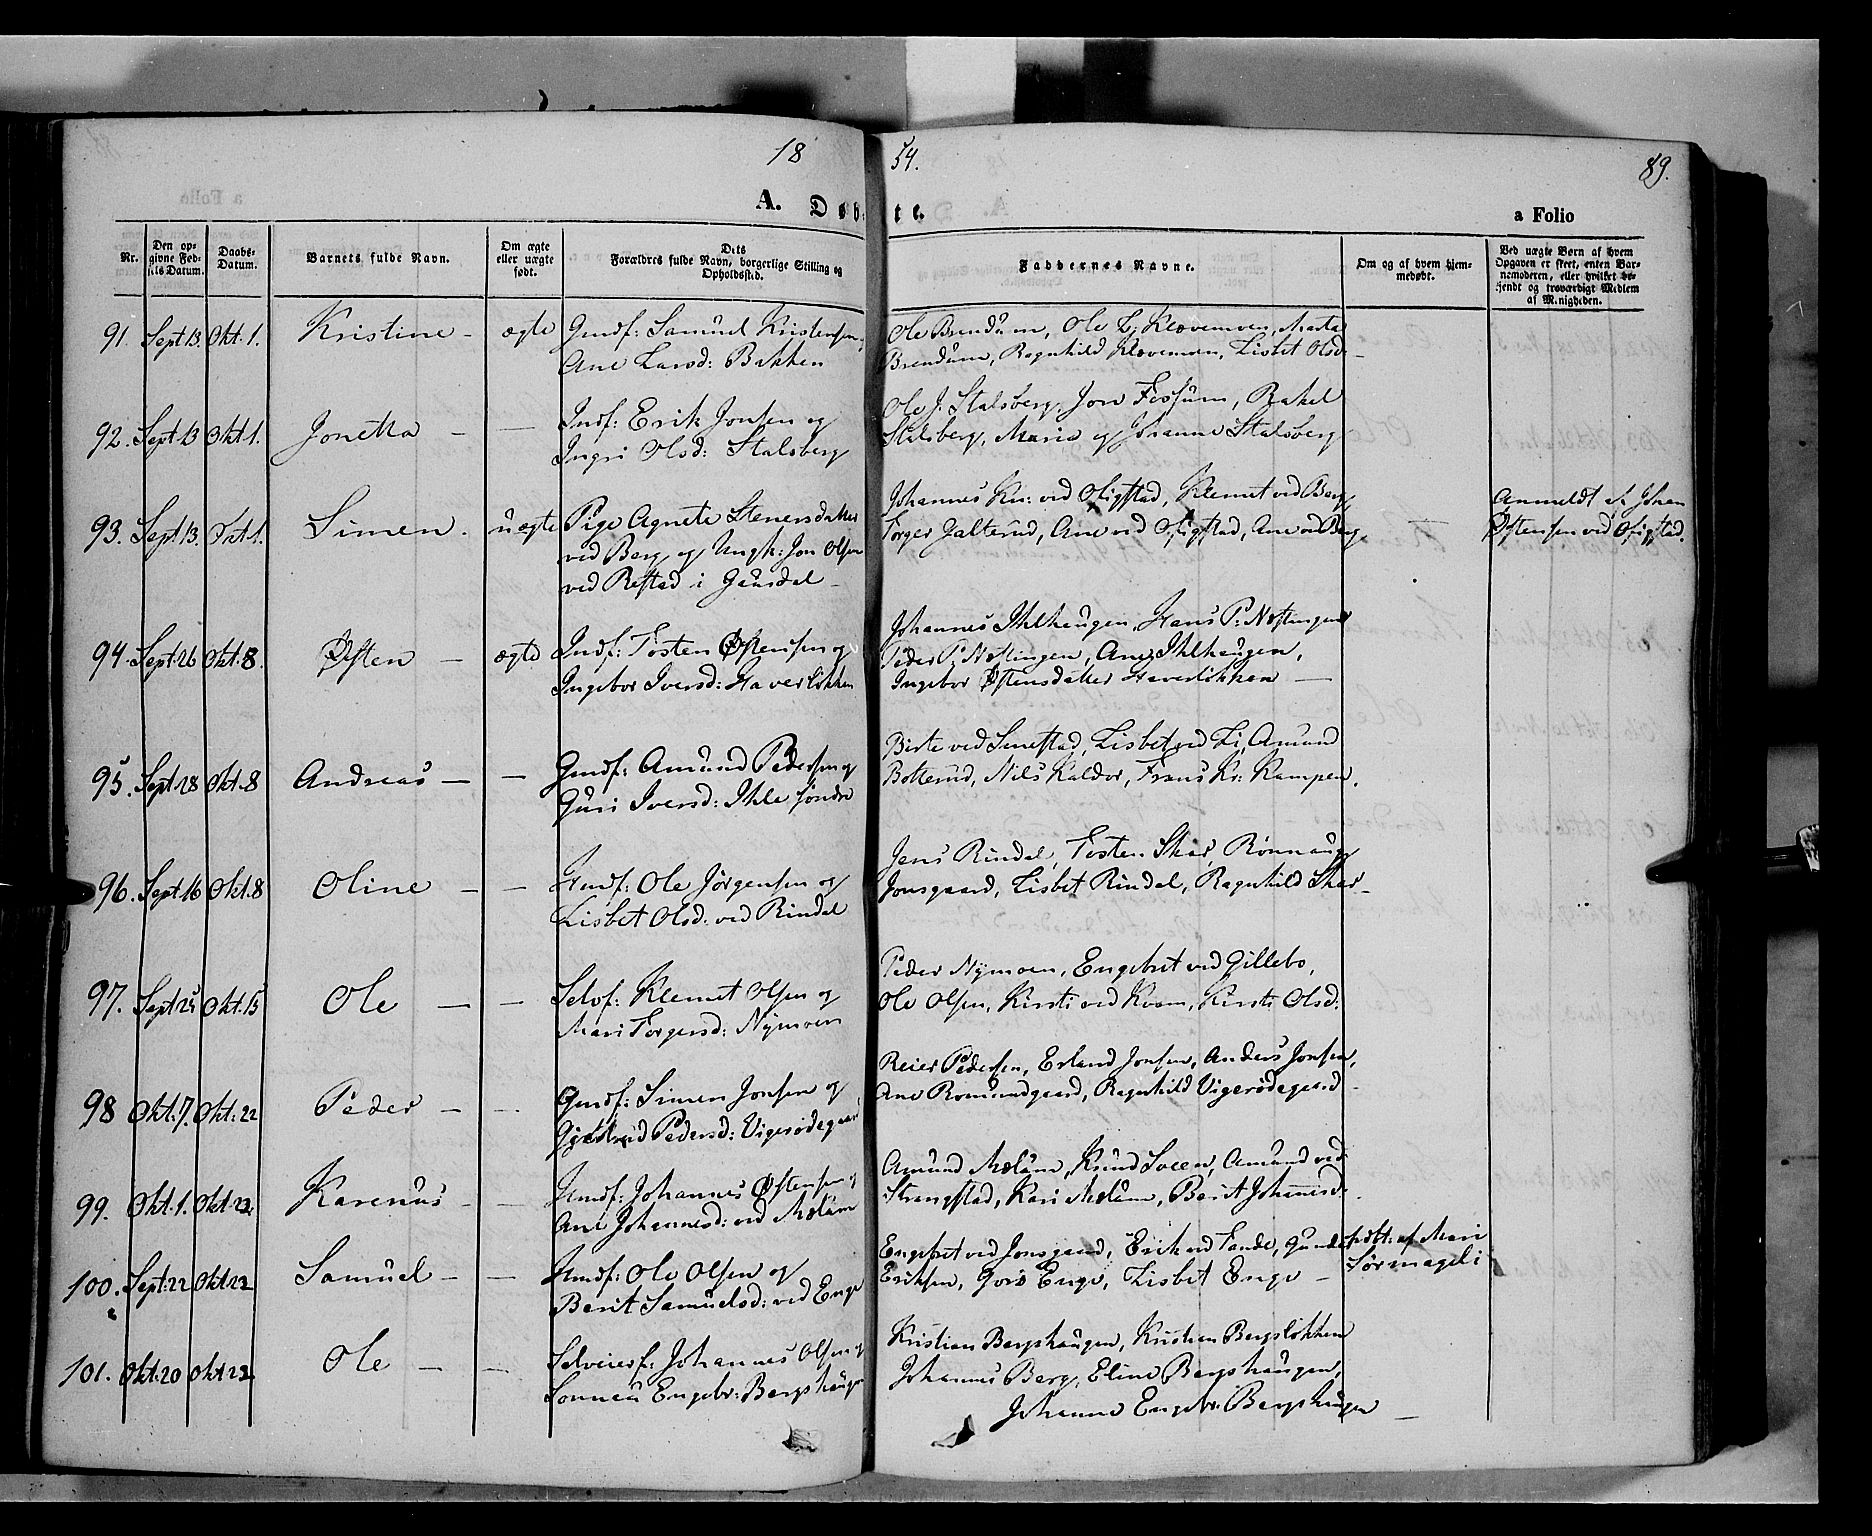 18
54.
89.
A. Døb-
te.
a Folio
Nr.
Den op-
givne Fød-
sels Datum.
Daabs-
Datum.
Barnets fulde Navn.
Om ægte
eller uægte
født.
Dets
Forældres fulde Navn, borgerlige Stilling og
Opholdssted.
Faddernes Navne.
Om og af hvem hjem-
medøbt.
Ved uægte Børn af hvem
Opgaven er skeet, enten Bar-
nemoderen, eller hvilket be-
kjendt og troværdigt Medlem
af Menigheden.
91. Sept 13. Okt. 1. Kristine - ægte Gmdf: Samuel Kristensen,
Ane Larsd: Bakken
Ole Brendum, Ole L. Klovemoen, Marta
Brendum, Ragnhild Klovemoen, Lisbet Olsd -
92. Sept. 13 Okt. 1. Jonetta - - Indf: Erik Jonsen og
Ingri Olsd: Stalsberg
Ole J. Stalsberg, Jon Fossum, Rakel
Stalsberg, Marie og Johanne Stalsberg
93. Sept. 13. Okt. 1. Simen. uægte Pige Agnete Stenersdatter
ved Berg og Ungk: Jon Olsen
ved Restad i Gausdal -
Johannes Kn: ved Ofigstad, Klemet ved Berg,
Torger Jalterud, Ane ved Ofigstad, Ane ved Berg.
-
Anmeldt af Johan
Østensen ved Ofigstad.
94. Sept. 26 Okt. 8. Østen - ægte Indf: Tosten Østensen og
Ingebor Iversd: Haverløkken
Johannes Ihlehaugen, Hans P. Nøstingen
Peder P. Nøstingen, Ane Ihlehaugen,
Ingebor Østensdatter Haverløkken -
95. Sept 28 Okt. 8 Andreas - - Gmdf: Amund Pedersen og
Guri Iversd: Ihle søndre
Birte ved Senestad, Lisbet ved Li, Amund
Botterud, Nils Kaldor, Frans Kr: Kampen.
96. Sept. 16 Okt. 8 Oline - - Hmdf: Ole Jørgensen og
Lisbet Olsd: ved Rindal
Jens Rindal, Tosten Skar, Rønnaug
Jonsgaard, Lisbet Rindal, Ragnhild Skar -
97. Sept 25 Okt. 15 Ole - - Selvf: Klemet Olsen og
Mari Torgersd: Nymoen
Peder Nymoen, Engebret ved Gillebo,
Ole Olsen, Kirsti ved Kvam, Kirsti Olsd:
98 Okt. 7. Okt. 22 Peder - - Gmdf: Simen Jonsen og
Gjertrud Pedersd: Vigerødegaard
Reier Pedersen, Erland Jonsen, Anders Jonsen,
Ane Romundgaard, Ragnhild Vigerødegaard -
99. Okt. 1. Okt. 22. Karenus - - Hmdf: Johannes Østensen og
Ane Johannesd: ved Mælum
Amund Mælum, Knud Sveen, Amund ved
Strangstad, Kari Mælum, Berit Johannesd.
100. Sept. 22 Okt 22 Samuel - - Hmdf: Ole Olsen og
Berit Samuelsd: ved Enge
Engebret ved Jonsgaard, Erik ved Lande, Gunder
Eriksen, Goro Enge, Lisbet Enge -
hdbt. af Mari
Sørmageli
101. Okt. 20 Okt 22. Ole - - Selveierf: Johannes Olsen og
Sonneu Engebr: Bergshaugen
Kristian Bergshaugen, Kristian Bergsløkken
Johannes Berg, Eline Bergshaugen,
Johanne Engebr. Bergshaugen -